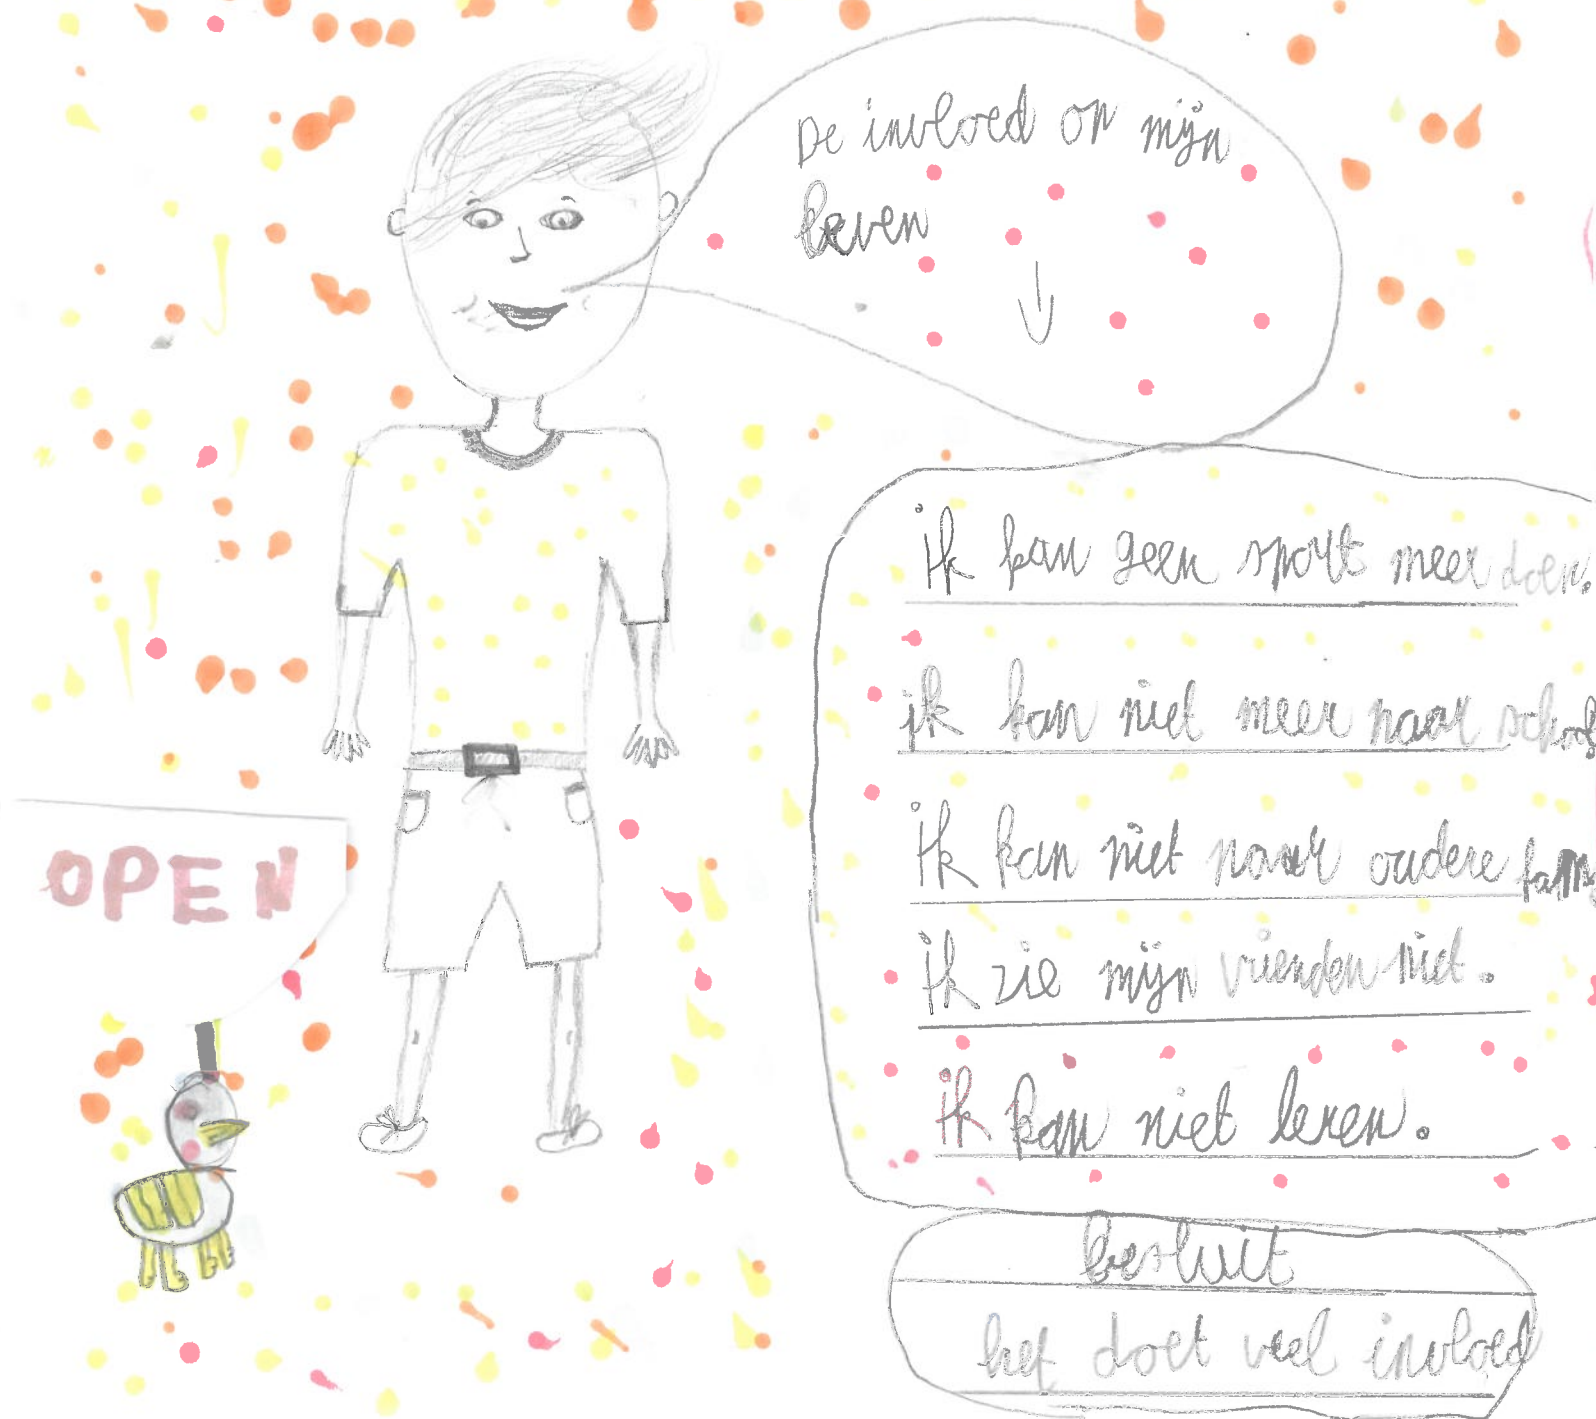 De invloed op mijn
leven
ik kan geen sport meer doen.
ik kan niet meer naar school
ik kan niet naar oudere fam
ik zie mijn vrienden niet.
ik kan niet leren.
besluit
het doet veel invloed
OPEN